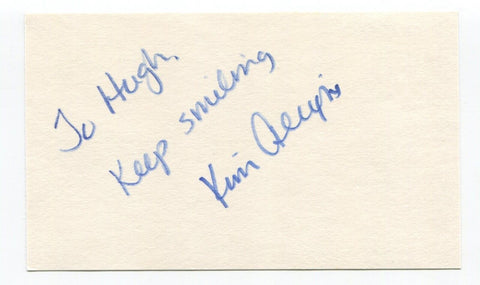 To Hugh,
Keep smiling
Kim Alexis